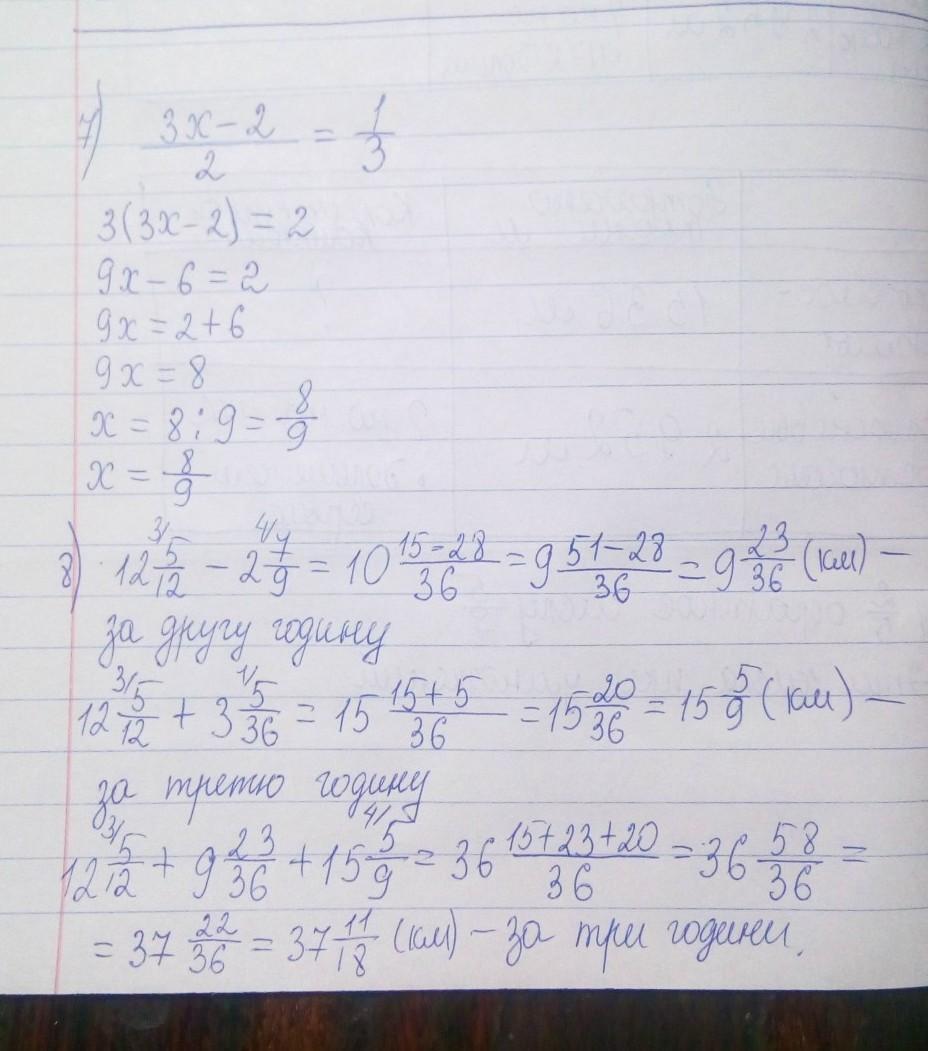 7) (3x-2)/2 = 1/3
3(3x-2) = 2
9x-6 = 2
9x = 2+6
9x = 8
x = 8:9 = 8/9
x = 8/9
8) 12 5/12 (3/) - 2 7/9 (4/) = 10 (15-28)/36 = 9 (51-28)/36 = 9 23/36 (км) -
за другу годину
12 5/12 (3/) + 3 5/36 (1/) = 15 (15+5)/36 = 15 20/36 = 15 5/9 (км) -
за третю годину
12 5/12 (3/) + 9 23/36 + 15 5/9 (4/) = 36 (15+23+20)/36 = 36 58/36 =
= 37 22/36 = 37 11/18 (км) - за три години.